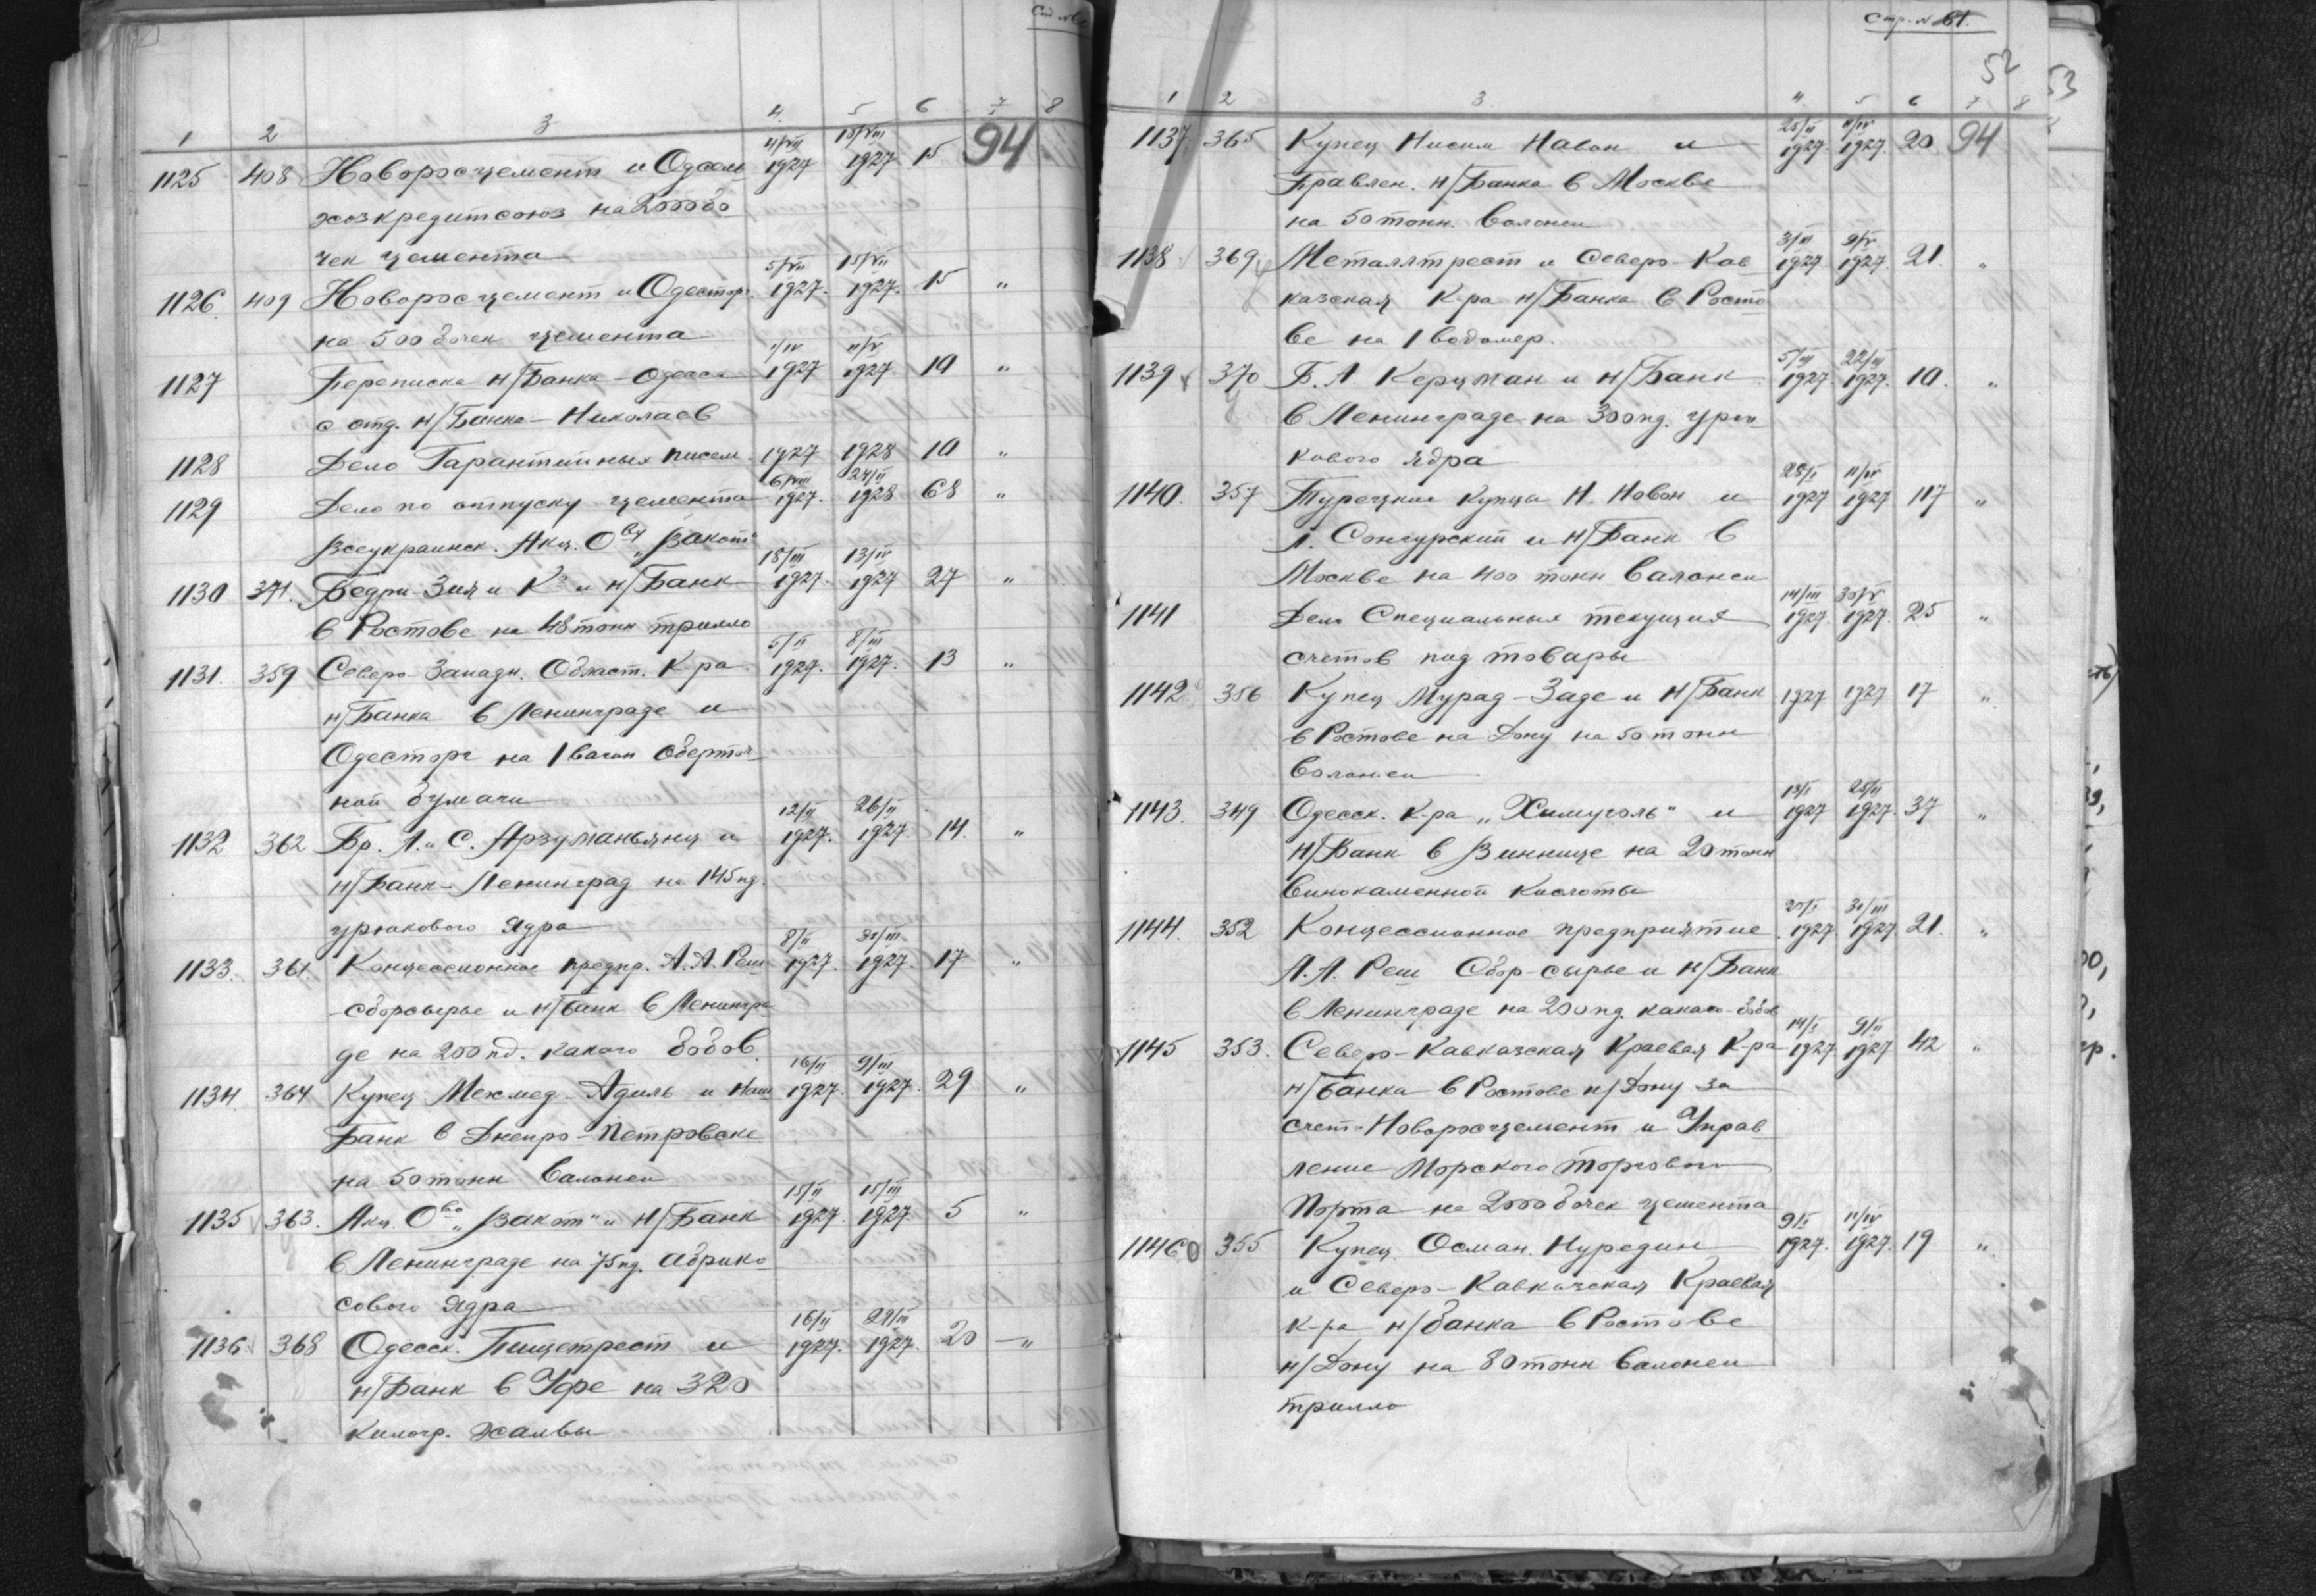 1 2 3 4. 5 6 7 8
4/VIII 15/VIII
1125 408 Новоросцемент и Одсель 1927 1927 15 94
хозкредитсоюз на 2000 бо
чек цемента
5/VII 15/VII
1126 409 Новоросцемент и Одесторг. 1927. 1927. 15 "
на 500 бочек цемента
1/IV 11/V
1127 Переписка Н/Банка - Одесса 1927 1927 10 "
с отд. Н/Банка - Николаев
1128 Дело Гарантийных писем. 1927 1928 10 "
6/VIII 24/II
1129 Дело по отпуску цемента 1927. 1928 68 "
Всеукраинск. Акц. О ва „Вакот"
18/III 13/IV
1130 371. Бедри Зия и Ко и Н/Банк 1927. 1927 27 "
в Ростове на 48 тонн трилло
5/II 8/III
1131. 359 Северо Западн. Област. К-ра 1927. 1927. 13 "
Н/Банка в Ленинграде и
Одесторг на 1 вагон оберточ
ной бумаги
12/II 26/II
1132 362 Бр. А. и С. Арзуманьянц и 1927. 1927. 14. "
Н/Банк - Ленинград на 145 пд.
урюкового ядра
8/II 31/III
1133. 361. Концессионное предпр. А.А. Реш 1927. 1927. 17 "
- Сборсырье и Н/Банк в Ленингра
де на 200 пд. какаго бобов.
16/II 9/III
1134. 364 Купец Мехмед - Адиль и Наш 1927. 1927. 29 "
Банк в Днепро-Петровске
на 50 тонн Валонеи
15/II 15/III
1135 363. Акц. О во „Вакот" и Н/Банк 1927. 1927. 5 "
в Ленинграде на 75 пд. абрико
сового ядра
16/II 29/III
1136. 368 Одесск. Пищетрест и 1927. 1927. 20 — "
Н/Банк в Уфе на 320
килогр. халвы
Стр. № 61.
52
53
1 2 3. 4. 5 6 7 8
25/II 11/IV
1137. 365 Купец Нисим Навон и 1927. 1927. 20 94
Правлен. Н/Банка в Москве
на 50 тонн. Валонеи
3/III 9/V
1138 369 Металлтрест и Северо-Кав 1927 1927. 21. "
казская К-ра Н/Банка в Росто
ве на 1 водомер.
5/III 22/III
1139 370 Б. Л. Керцман и Н/Банк 1927. 1927. 10. "
в Ленинграде на 300 пд. урю
кового ядра
28/I 11/IV
1140. 357 Турецкие купцы Н. Новон и 1927 1927 117 "
Л. Сонгурский и Н/Банк в
Москве на 400 тонн Валонеи
14/III 30/V
1141 Дело Специальных текущих 1927. 1927. 25 "
счетов под товары
1142 356 Купец Мурад-Заде и Н/Банк 1927 1927 17 "
в Ростове на Дону на 50 тонн
Валонеи
13/I 25/II
1143. 349 Одесск. К-ра „Химуголь" и 1927 1927. 37 "
Н/Банк в Виннице на 20 тонн
Винокаменной кислоты
20/I 31/III
1144. 352 Концессионное предприятие 1927. 1927. 21. "
А.А. Реш Сбор-сырье и Н/Банк
в Ленинграде на 200 пд. какаго-бобов
14/I 9/II
1145 353. Северо-Кавказская Краевая К-ра 1927. 1927 42 "
Н/Банка в Ростове н/Дону за
счет Новоросцемент и Управ
ление Морского Торгового
Порта на 2000 бочек цемента
9/I 11/IV
1146 355 Купец Осман Нуредин 1927. 1927. 19 "
и Северо-Кавказская Краевая
К-ра Н/Банка в Ростове
н/Дону на 80 тонн Валонеи
трилло